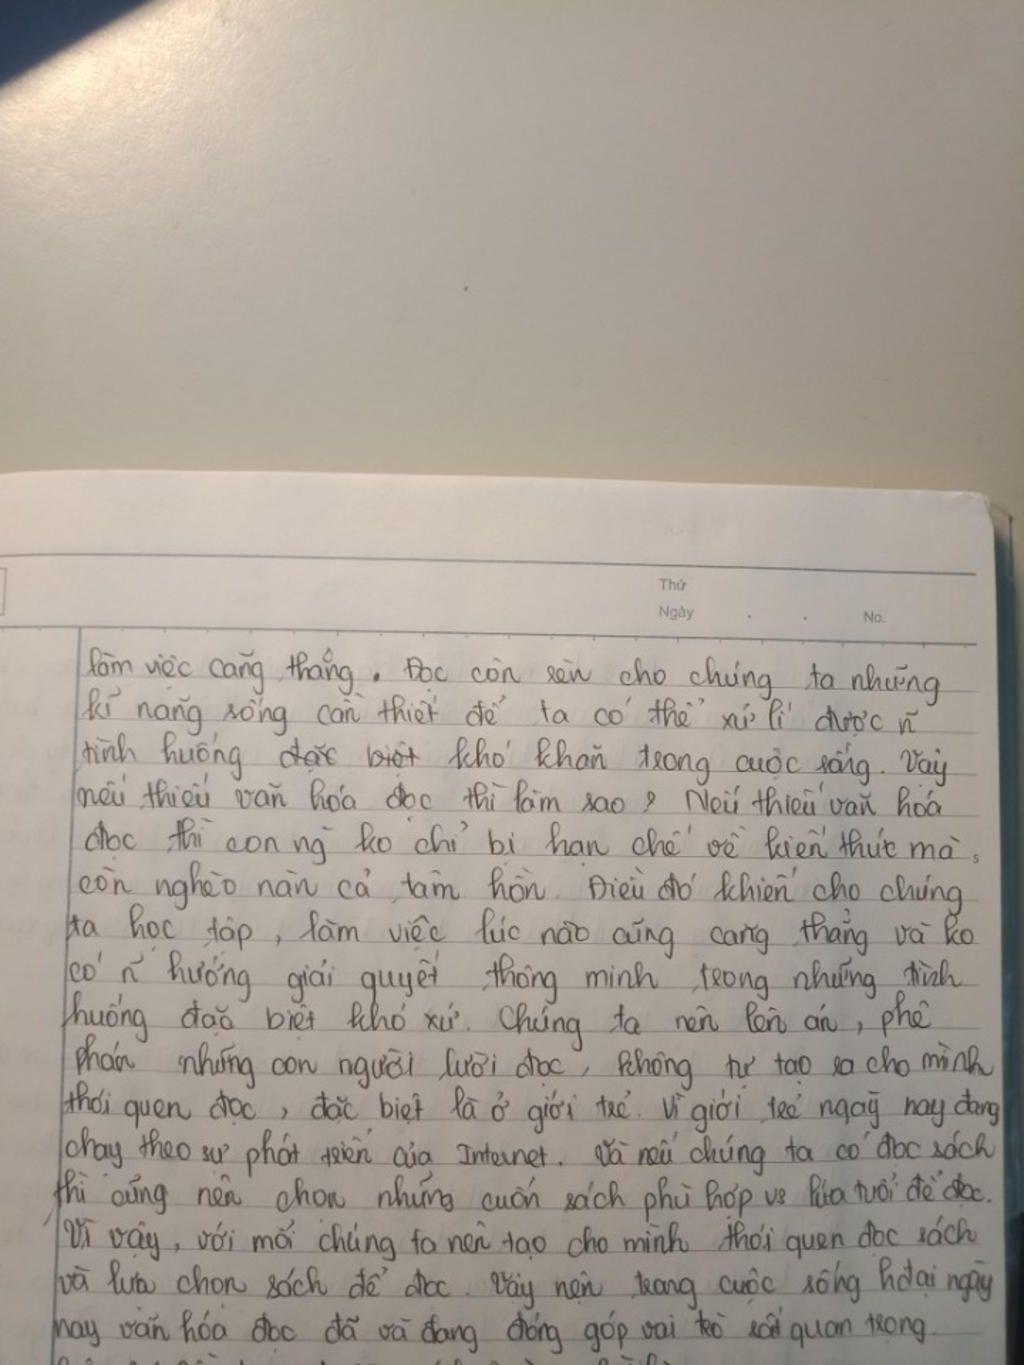 Thứ
Ngày . . No.
làm việc căng thẳng. Đọc còn rèn cho chúng ta những
kĩ năng sống cần thiết để ta có thể xử lí được n~
tình huống đặc biệt khó khăn trong cuộc sống. Vậy
nếu thiếu văn hóa đọc thì làm sao? Nếu thiếu văn hóa
đọc thì con ng ko chỉ bị hạn chế về kiến thức mà,
còn nghèo nàn cả tâm hồn. Điều đó khiến cho chúng
ta học tập, làm việc lúc nào cũng căng thẳng và ko
có n~ hướng giải quyết thông minh trong những tình
huống đặc biệt khó xử. Chúng ta nên lên án, phê
phán những con người lười đọc, không tự tạo ra cho mình
thói quen đọc, đặc biệt là ở giới trẻ. Vì giới trẻ ngày nay đang
chạy theo sự phát triển của Internet. Và nếu chúng ta có đọc sách
thì cũng nên chọn những cuốn sách phù hợp vs lứa tuổi để đọc.
Vì vậy, với mỗi chúng ta nên tạo cho mình thói quen đọc sách
và lựa chọn sách để đọc. Vậy nên trong cuộc sống hđại ngày
nay văn hóa đọc đã và đang đóng góp vai trò rất quan trọng.